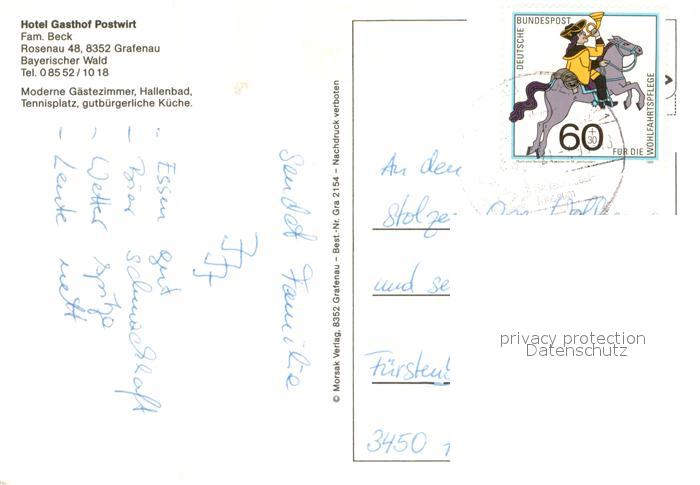 Hotel Gasthof Postwirt
Fam. Beck
Rosenau 48, 8352 Grafenau
Bayerischer Wald
Tel. 0 85 52 / 10 18
Moderne Gästezimmer, Hallenbad,
Tennisplatz, gutbürgerliche Küche.
- Essen gut
- Bier schmackhaft
- Wetter spitze
- Leute nett
sendet Familie
© Morsak Verlag, 8352 Grafenau – Best.-Nr. Gra 2154 – Nachdruck verboten
DEUTSCHE BUNDESPOST
60 + 30
FÜR DIE WOHLFAHRTSPFLEGE
An den
Stolze
und se
Fürstenb
3450
privacy protection
Datenschutz